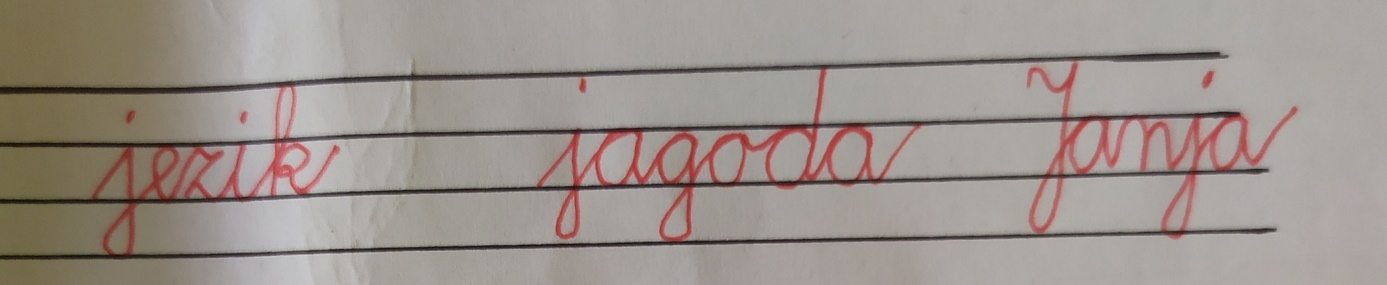 jezik jagoda Janja